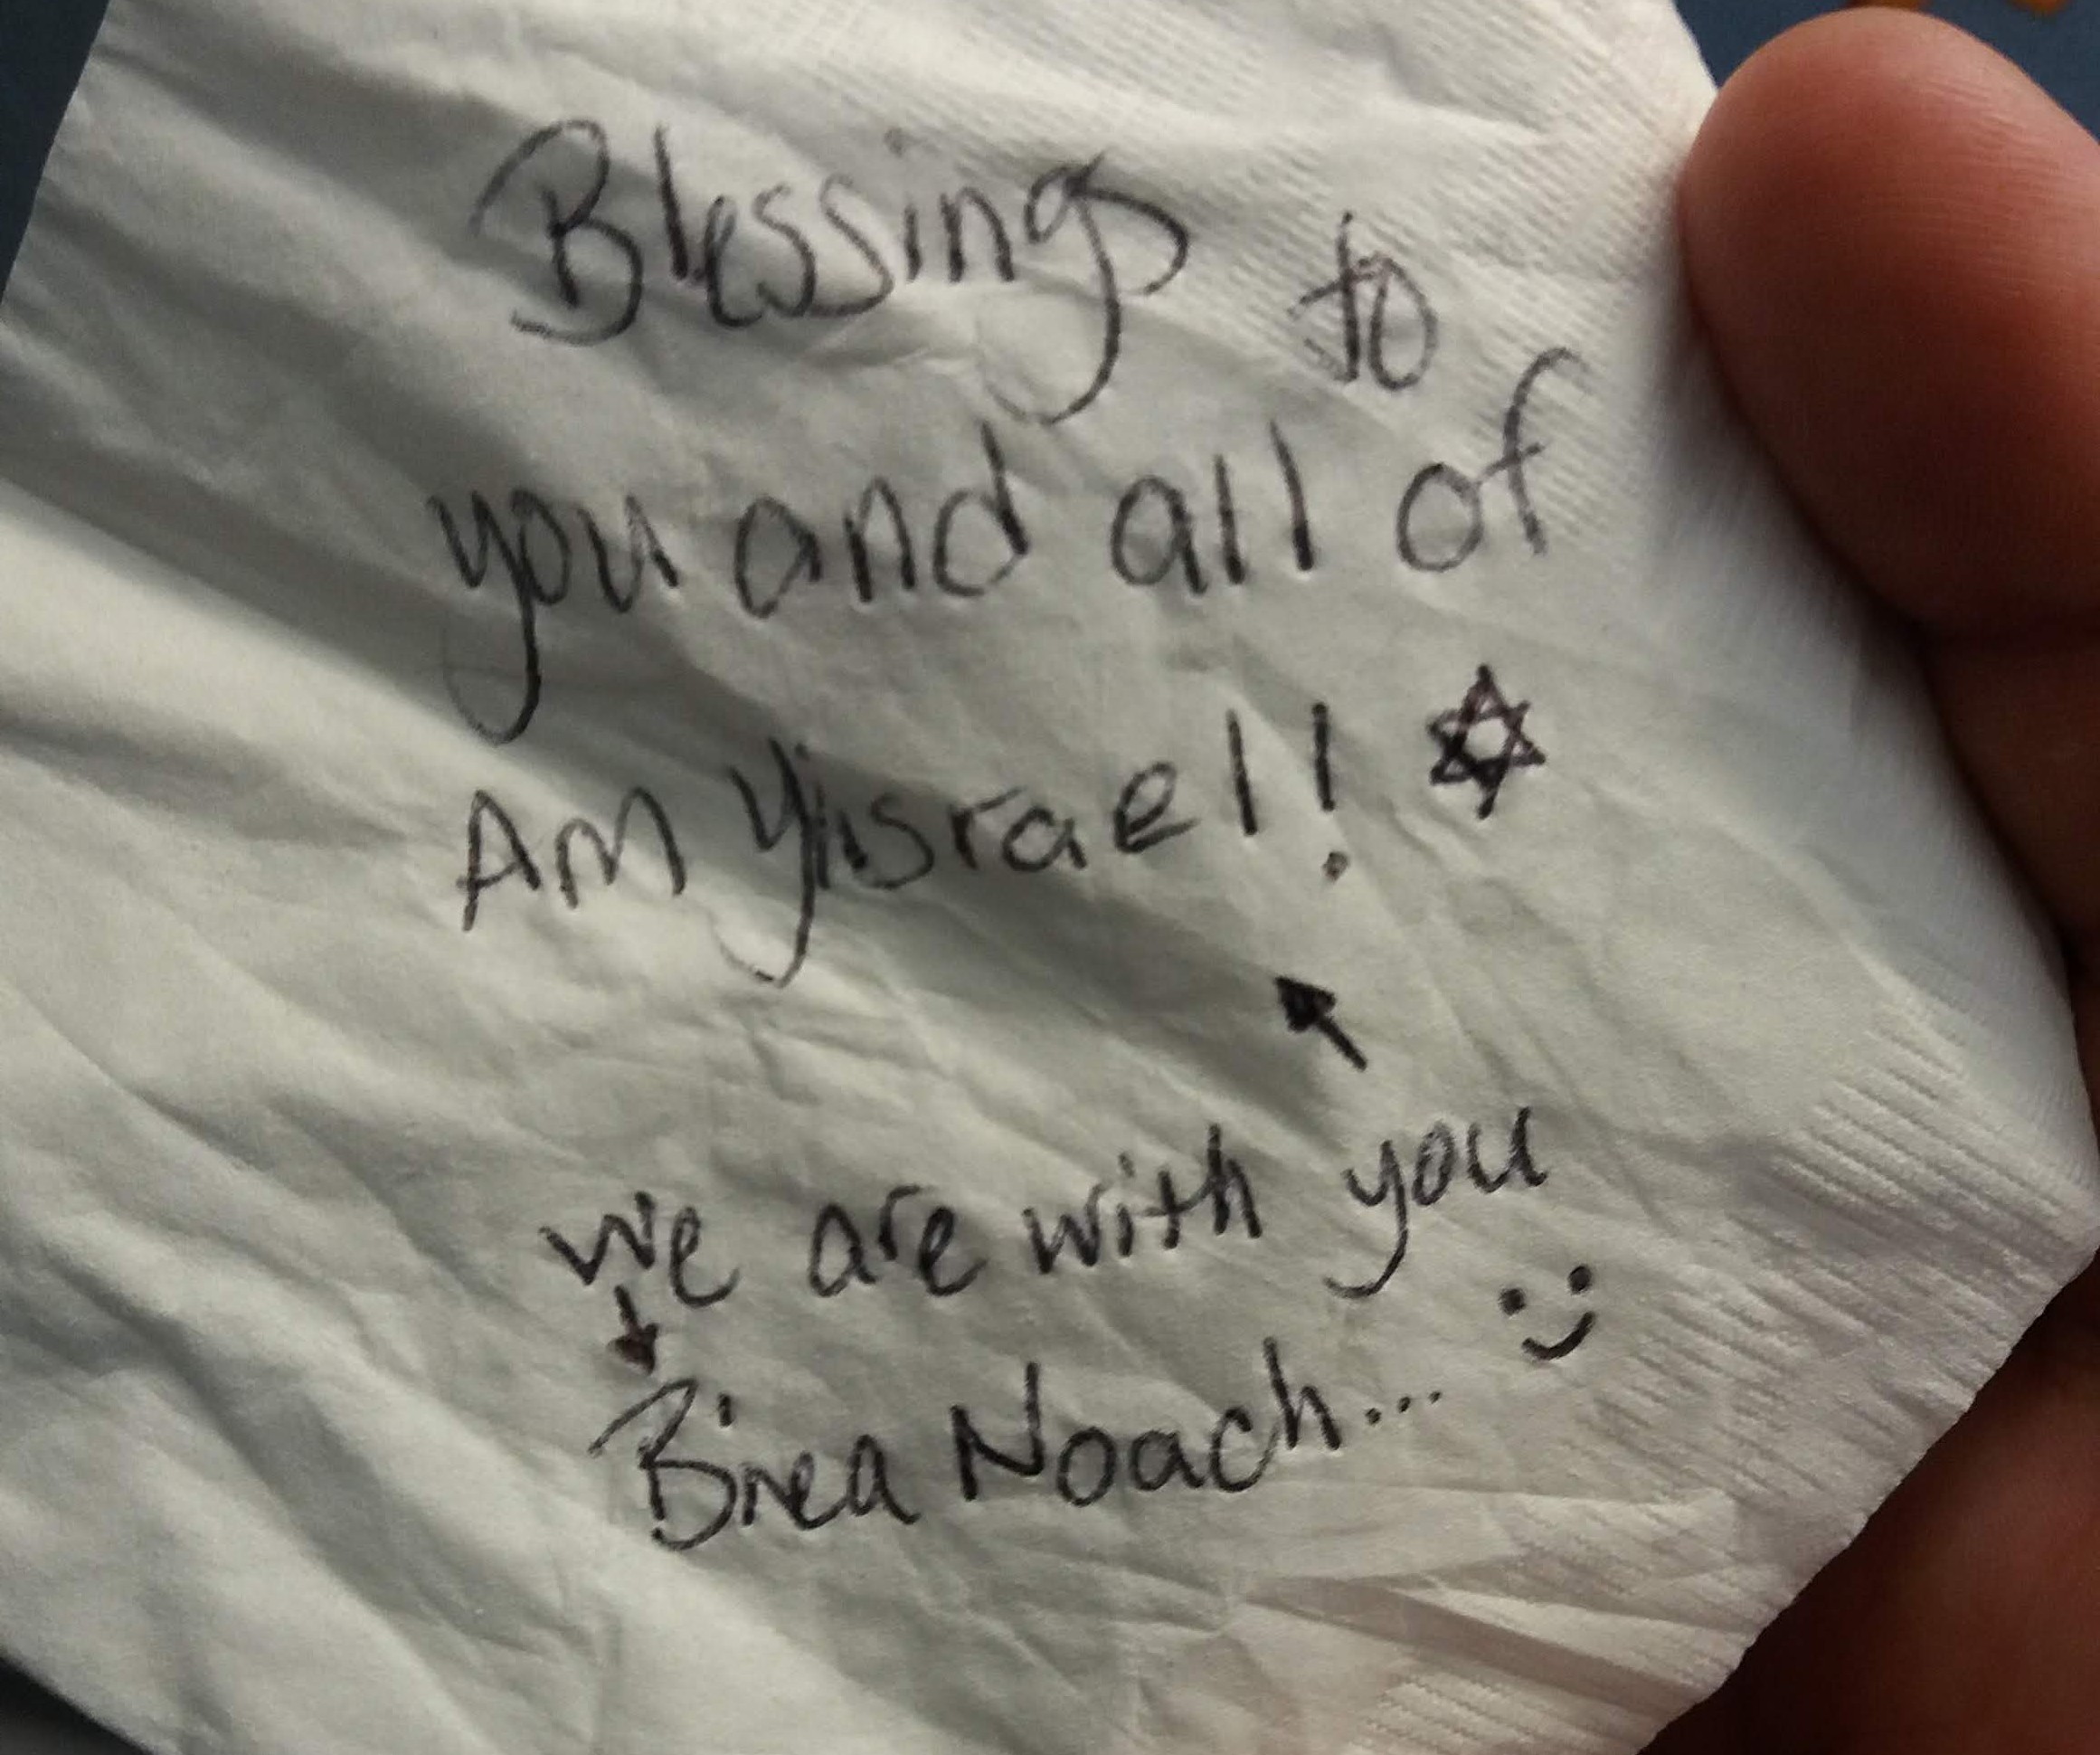 Blessings to
you and all of
Am Yisrael! ✡
we are with you
B'nea Noach... :)